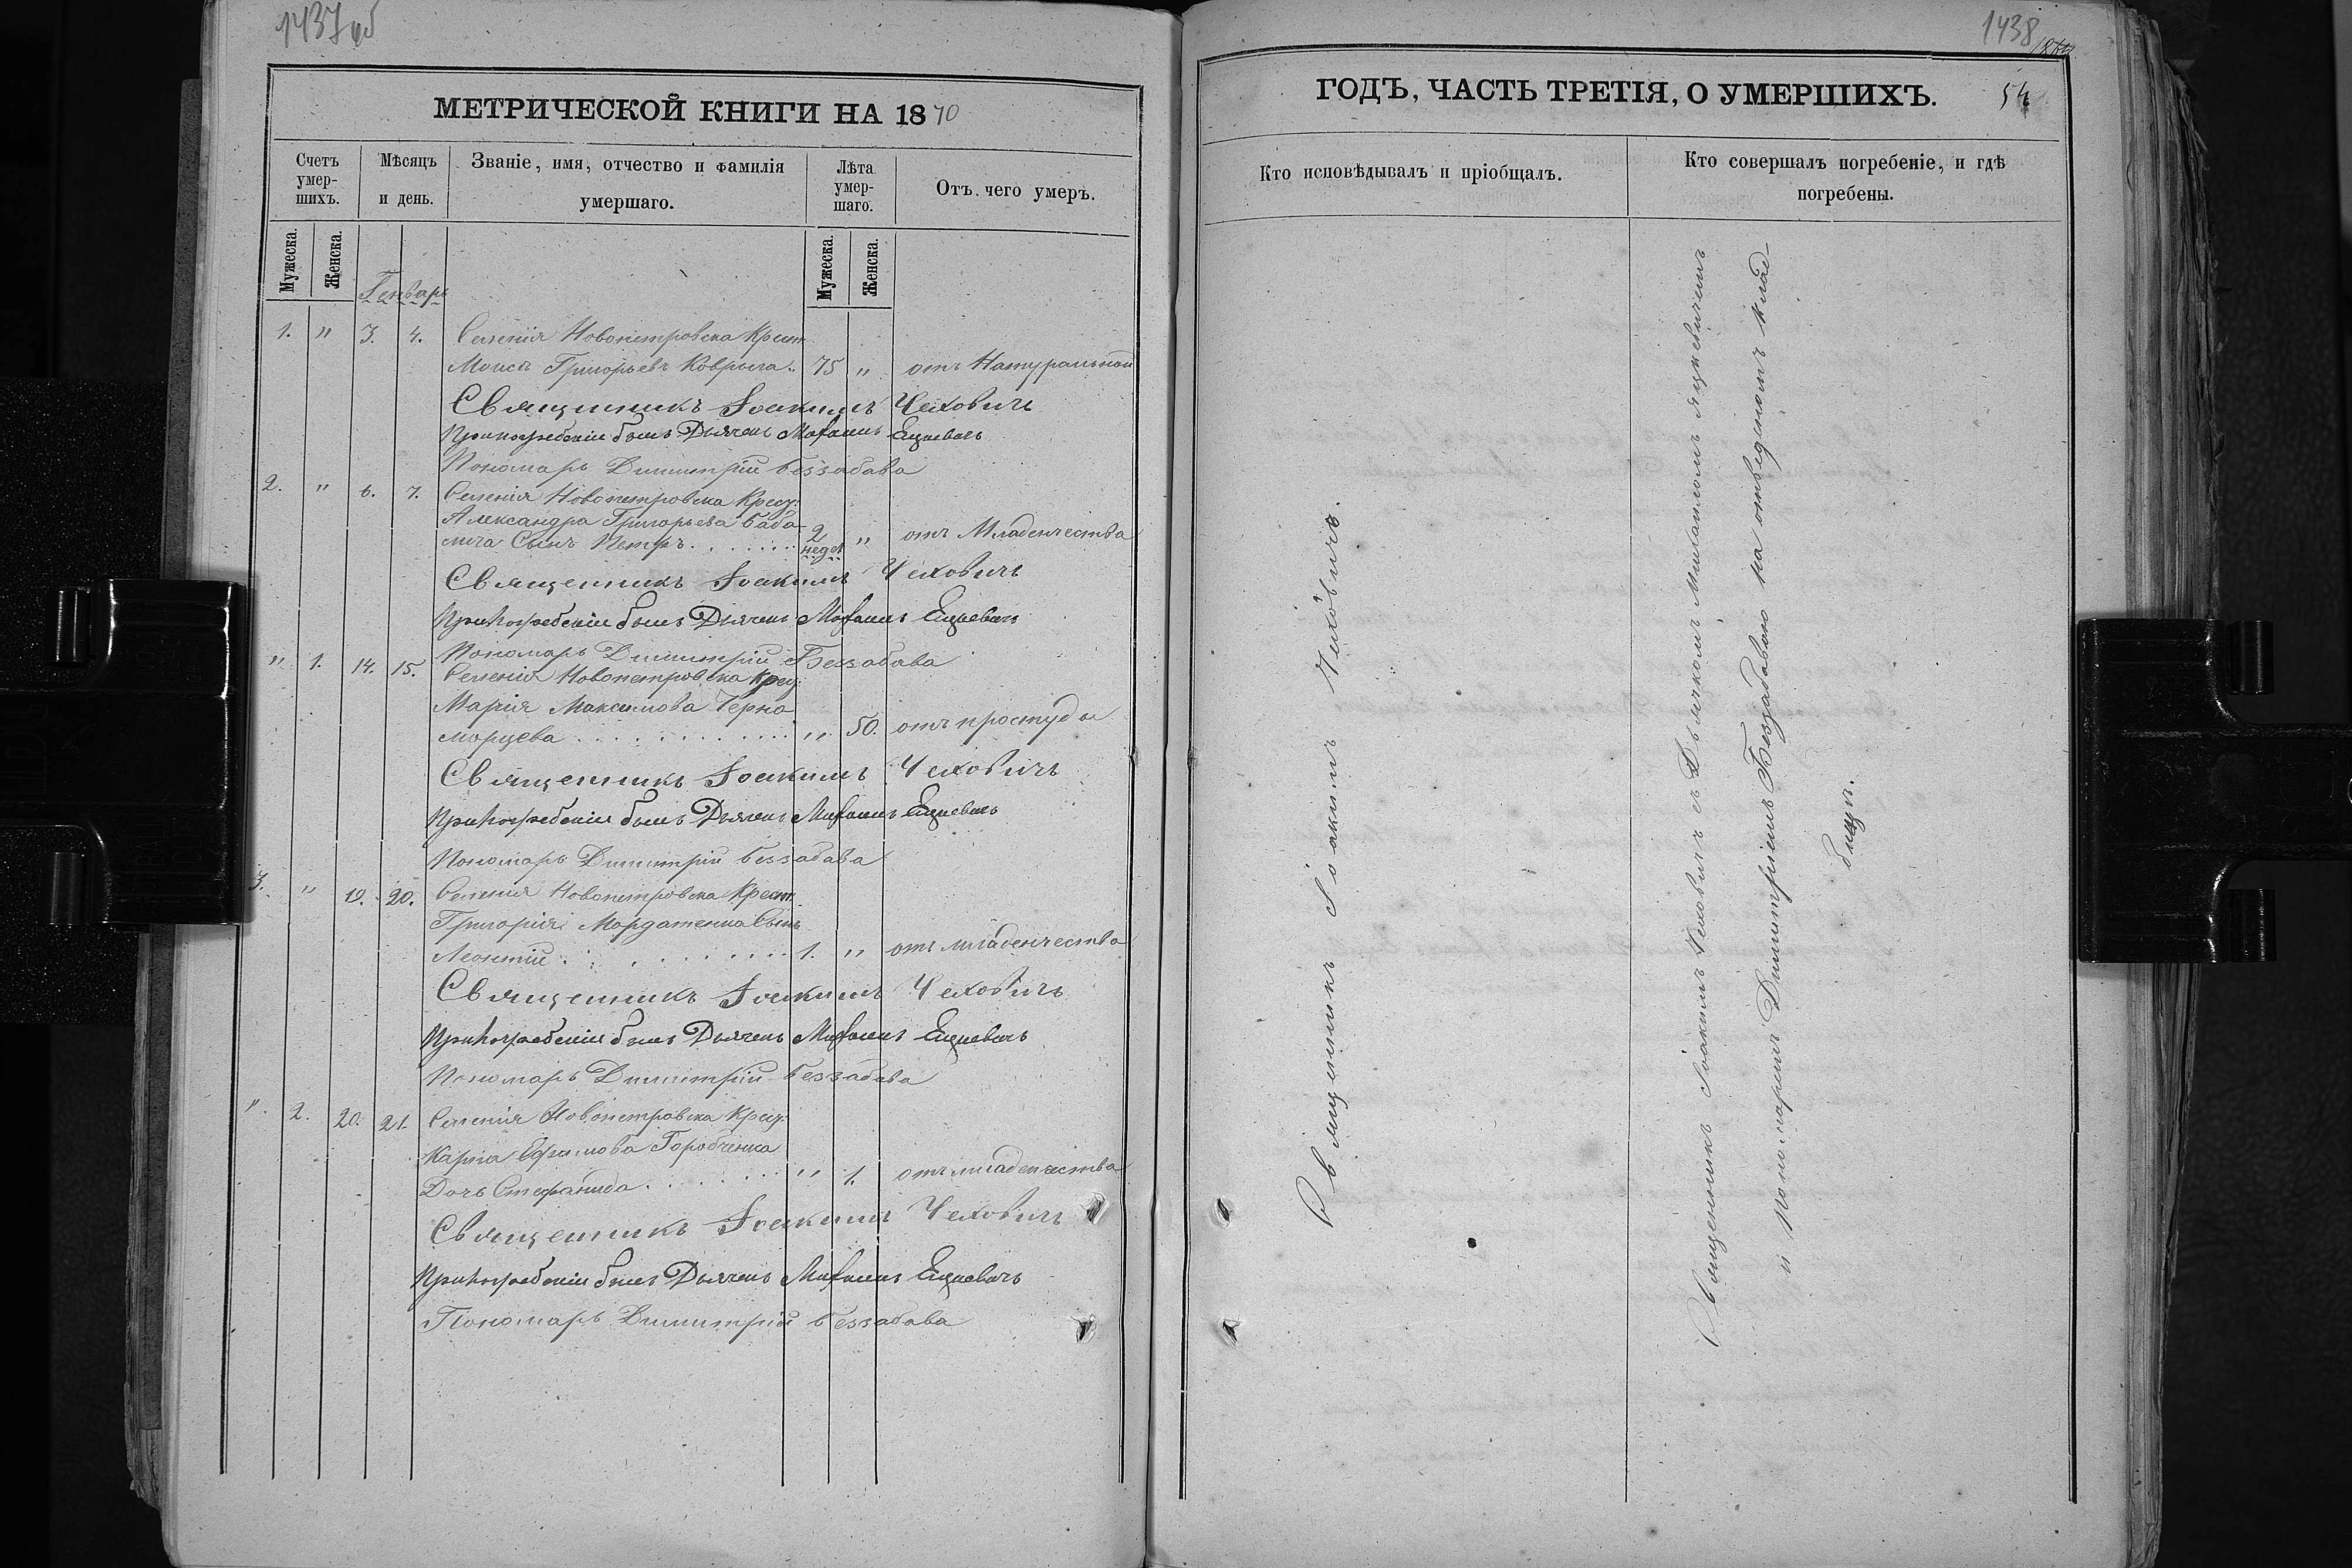 1437 об
МЕТРИЧЕСКОЙ КНИГИ НА 1870
Счетъ умер-шихъ.
Мѣсяцъ и день.
Званіе, имя, отчество и фамилія умершаго.
Лѣта умер-шаго.
Отъ чего умеръ.
Мужеска.
Женска.
Мужеска.
Женска.
Генварь
1. " 3. 4. Селенія Новопетровска Крест.
Моисей Григорьевъ Коврыга. 75 " отъ Натуральной
Священникъ Іоакимъ Чеховичъ
При погребеніи былъ Дьячекъ Михаилъ Ецкевичъ
Пономарь Димитрій Беззабава
2. " 6. 7. Селенія Новопетровска Крес:
Александра Григорьева Баба-
лича Сынъ Петръ 2 недел " отъ Младенчества
Священникъ Іоакимъ Чеховичъ
При погребеніи былъ Дьячекъ Михаилъ Ецкевичъ
Пономарь Димитрій Беззабава
" 1. 14. 15. Селенія Новопетровска Крес:
Марія Максимова Черно-
морцева " 50. отъ простуды
Священникъ Іоакимъ Чеховичъ
При погребеніи былъ Дьячекъ Михаилъ Ецкевичъ
Пономарь Димитрій Беззабава
3. " 19. 20. Селенія Новопетровска Крест.
Григорія Мордатенка Сынъ
Леонтій 1. " отъ младенчества
Священникъ Іоакимъ Чеховичъ
При погребеніи былъ Дьячекъ Михаилъ Ецкевичъ
Пономарь Димитрій Беззабава
" 2. 20. 21. Селенія Новопетровска Крес:
Карпа Ефимова Горобченка
Дочь Стефанида " 1. отъ младенчества
Священникъ Іоакимъ Чеховичъ
При погребеніи былъ Дьячекъ Михаилъ Ецкевичъ
Пономарь Димитрій Беззабава
1438
ГОДЪ, ЧАСТЬ ТРЕТІЯ, О УМЕРШИХЪ.
54
Кто исповѣдывалъ и пріобщалъ.
Кто совершалъ погребеніе, и гдѣ погребены.
Священникъ Іоакимъ Чеховичъ.
Священникъ Іоакимъ Чеховичъ съ Дьячкомъ Михаиломъ Яцкевичемъ
и Пономаремъ Димитріемъ Беззабавою на отведеномъ клад-
бищѣ.